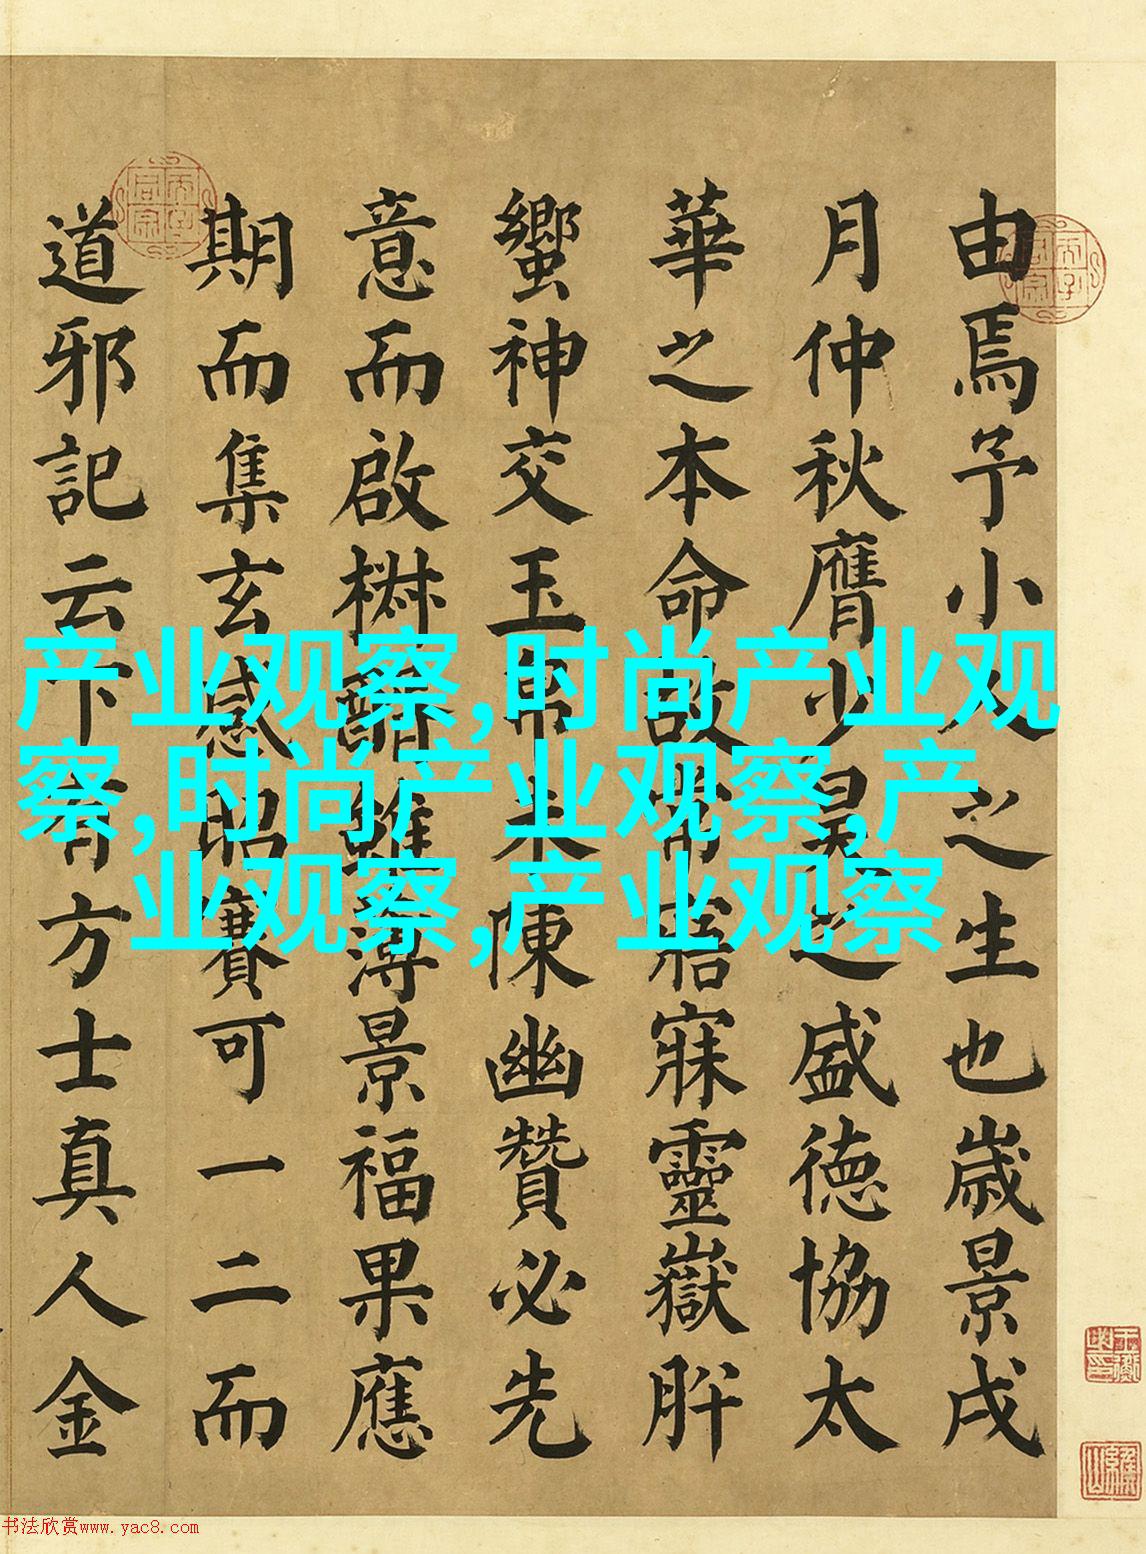 由焉予小之生也歲景戌
月仲秋膺少昊之盛德協太
華之本命故常寤寐靈嶽肸
蠁神交玉帛未陳幽贊必先
意而啟椒醑雖薄景福果應
期而集玄感昭賽可一二而
道邪記云下有方士真人金
产业观察,时尚产业观
察,时尚产业观察,产
业观察,产业观察
书法欣赏www.yac8.com